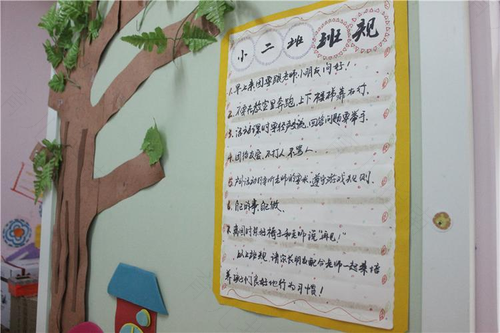 小二班班规
1、早上来园要跟老师、小朋友问好！
2、不在教室里奔跑，上下楼梯靠右行。
3、活动时要轻声说，回答问题要举手。
4、团结友爱，不打人不骂人。
5、户外活动时听老师的要求，遵守游戏规则。
6、自己的事己做。
7、离园时和老师说"再见"
以上班规，请家长朋友配合老师一起来培
养孩子们良好地行为习惯！